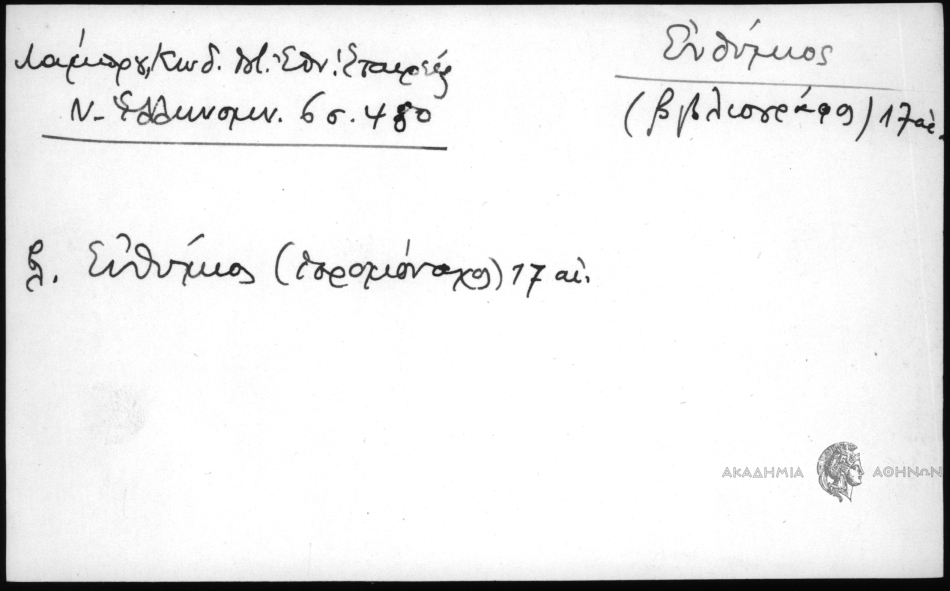 Λάμπρου, Κωδ. Ἱστ. Ἐθν. Ἑταιρείας
Ν. Ἑλληνομν. 6 σ. 480
Εὐθύμιος
(βιβλιογράφος) 17 αἰ.
βλ. Εὐθύμιος (ἱερομόναχος) 17 αἰ.
ΑΚΑΔΗΜΙΑ ΑΘΗΝΩΝ